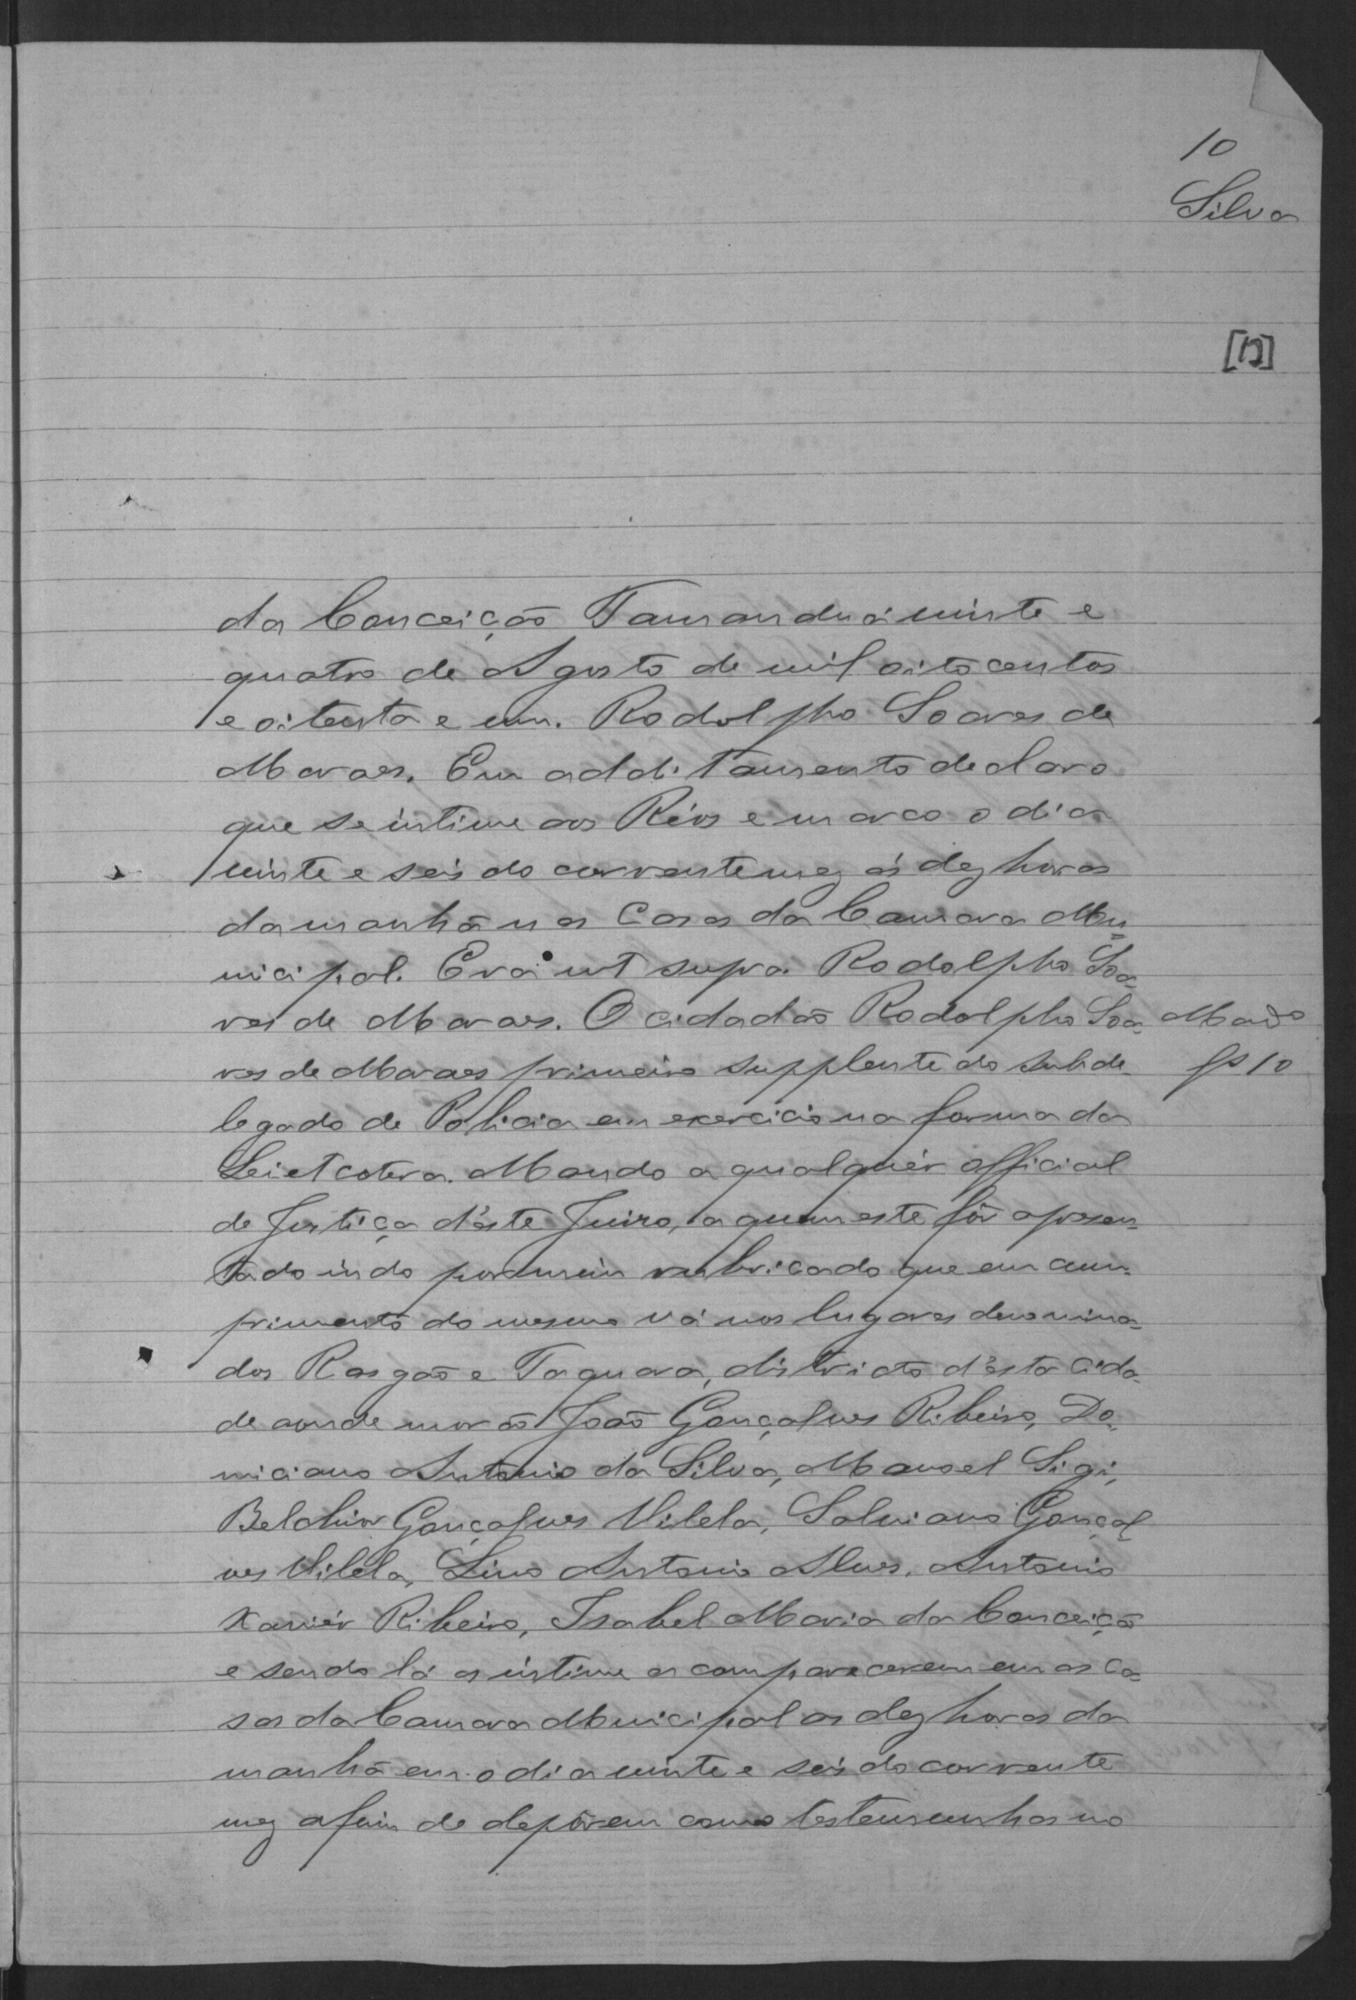 10
Silva
da Conceição Tamanduá vinte e
quatro de Agosto de mil oito centos
e oitenta e um. Rodolpho Soares de
Moraes. Em additamento declaro
que se intime aos Réos e marco o dia
vinte e seis do corrente mez ás dez horas
da manhã na Casa da Camara Mu=
nicipal. Era ut supra. Rodolpho Soa=
res de Moraes. O cidadão Rodolpho Soa=
Mando
fs 10
res de Moraes primeiro supplente do subde=
legado de Policia em exercicio na forma da
Lei et cetera. Mando a qualquér official
de Justiça d'éste Juizo, a quem este fôr apresen=
tado indo por mim rubricado que em cum=
primento do mesmo vá nos lugares denomina=
dos Rasgão e Taquara, districto d'ésta Cida=
de aonde morão João Gonçalves Ribeiro, Do=
miciano Antonio da Silva, Manoel Gigi,
Belchior Gonçalves Vilela, Salviano Gonçal=
ves Vilela, Lino Antonio Alves, Antonio
Xaviér Ribeiro, Isabel Maria da Conceição
e sendo lá os intime a comparecerem em as Ca=
sas da Camara Municipal as dez horas da
manhã em o dia vinte e seis do corrente
mez afim de depôrem como testemunhas no